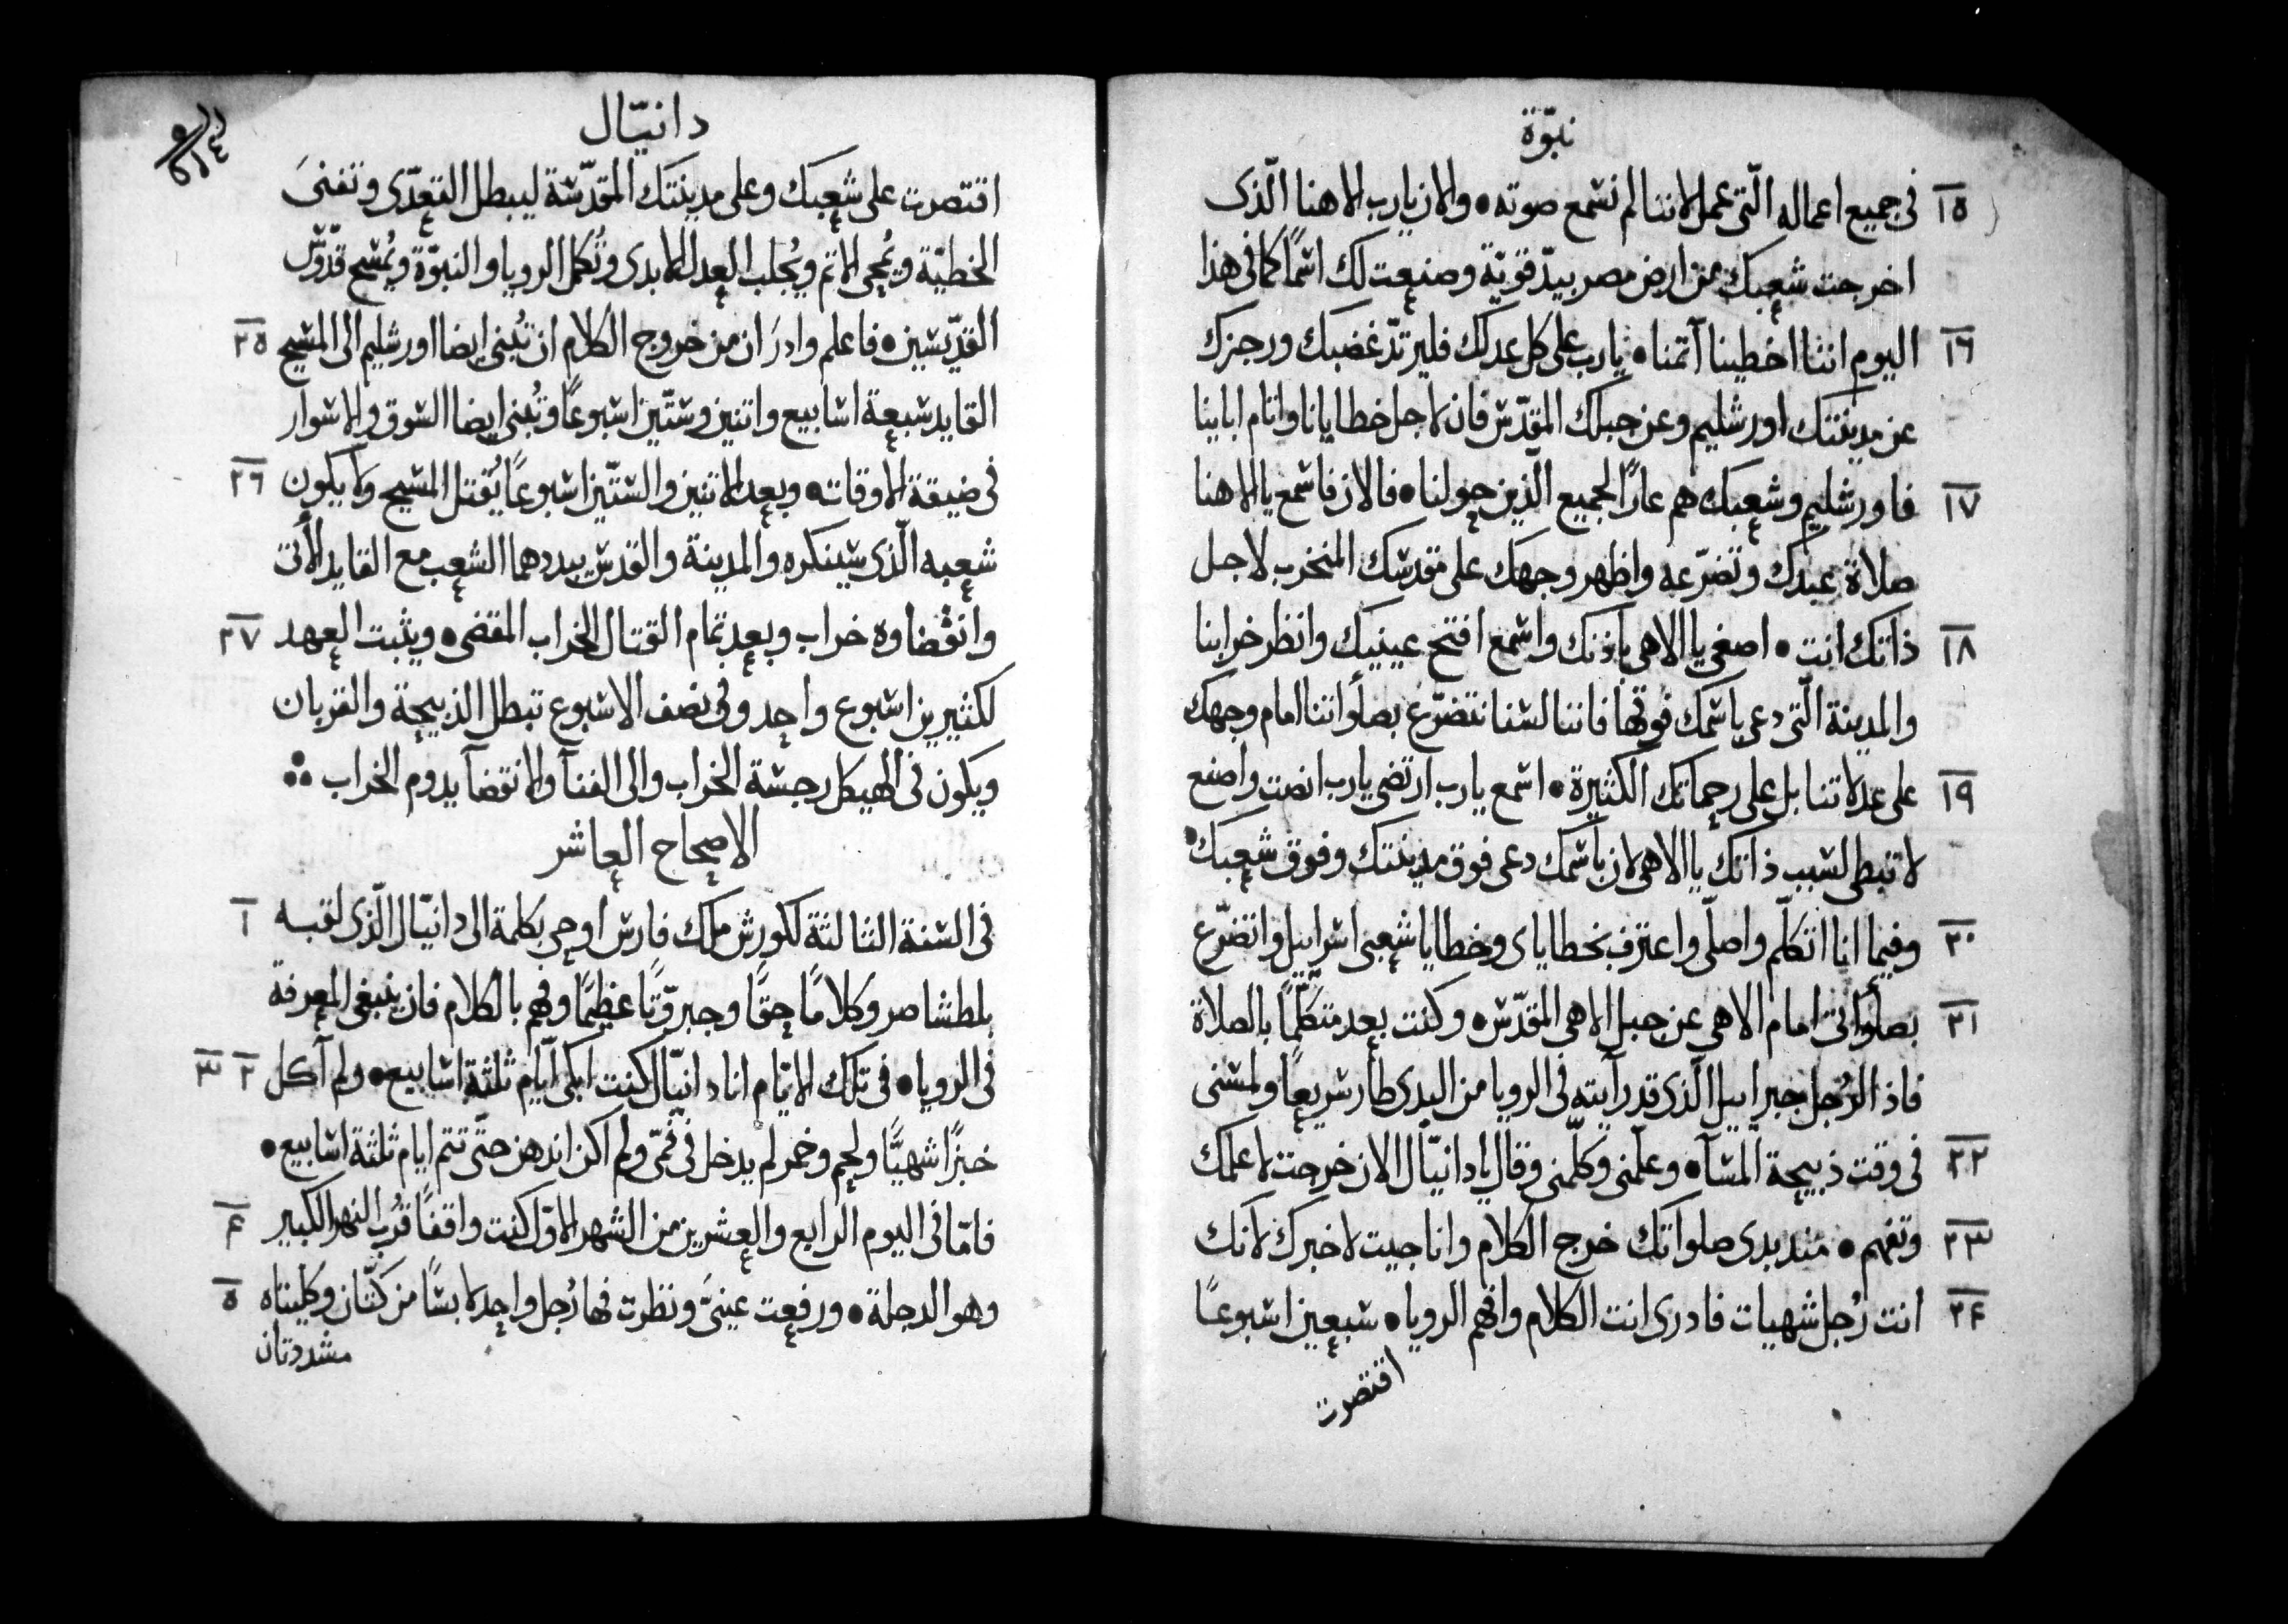 نبوّة
١٥ فى جميع اعماله الّتى عمل لاننا لم نسمع صوته • والان يا رب الاهنا الّذى
اخرجت شعبك من ارض مصر بيدّ قويّة وصنعت لك اسمًا كما فى هذا
١٦ اليوم اننا اخطينا آثمنا • يا رب على كل عدلك فليرتدّ غضبك ورجزك
عن مدينتك اورشليم وعن جبلك المقدّس فان لاجل خطايانا واثام اباينا
١٧ فاورشليم وشعبك هم عارًا لجميع الّذين حولنا • فالان فاسمع يا الاهنا
صلاة عبدك وتضرّعه واظهر وجهك على مقدسك المنخرب لاجل
١٨ ذاتك انت • اصغى يا الاهى باذنك واسمع افتح عينيك وانظر خرابنا
والمدينة الّتى دعى باسمك فوقها فاننا لسنا نتضرّع بصلواتنا امام وجهك
١٩ على عدلاتنا بل على رحماتك الكثيرة • اسمع يا رب ارتضى يا رب انصت واصنع
لا تبطى لسبب ذاتك يا الاهى لان باسمك دعى فوق مدينتك وفوق شعبك •
٢٠ وفيما انا اتكلّم واصلّى واعترف بخطاياى وخطايا شعبى اسراييل واتضرّع
٢١ بصلواتى امام الاهى عن جبل الاهى المقدّس • وكنت بعد متكلّمًا بالصلاة
فاذ الرُجل جبراييل الّذى قد رآيته فى الرويا من البدى طار سريعًا ولمسنى
٢٢ فى وقت ذبيحة المسآ • وعلّمنى وكلّمنى وقال يا دانيّال الان خرجت لاعلمك
٢٣ وتفهم • منذ بدى صلواتك خرج الكلام وانا جيت لاخبرك لانك
٢٤ انت رُجل شهيات فادرى انت الكلام وافهم الرويا • سبعين اسبوعًا
اقتصرت
دانيّال
اقتصرت على شعبك وعلى مدينتك المقدّسة ليبطل التعدّى وتفنىَ
الخطيّة ويُمحى الاثم ويُجلب العدل الابدى وتُكمل الرويا والنبوّة ويُمسح قدّوس
القدّيسين • فاعلم وادرَ ان من خروج الكلام ان تُبنى ايضا اورشليم الى المسيح ٢٥
القايد سبعة اسابيع واثنين وستّين اسبوعًا وتُبنى ايضا السوق والاسوار
فى ضيقة الاوقات • وبعد الاثنين والستّين اسبوعًا يُقتل المسيح ولا يكون ٢٦
شعبه الّذى سينكره والمدينة والقدس يبددهما الشعب مع القايد الأتى
وانقضاوه خراب وبعد تمام القتال الخراب المقضى • ويثبت العهد ٢٧
لكثيرين اسبوع واحد وفى نصف الاسبوع تبطل الذبيحة والقربان
ويكون فى الهيكل رجسة الخراب والى الفنآ والانقضآ يدوم الخراب ∴
الاصحاح العاشر
فى السنة الثالثة لكورش ملك فارس اوحى بكلمة الى دانيّال الّذى لقبه ١
بلطشاصر وكلامًا حقًّا وجبروّتًا عظيمًا وفهم بالكلام فان ينبغى المعرفة
فى الرويا • فى تلك الايّام انا دانيّال كنت ابكى آيام ثلثة اسابيع • ولم آكل ٢ ٣
خبزًا شهيًّا ولحم وخمر لم يدخل فى فمّى ولم اكن اندهن حتّى تتم ايام ثلثة اسابيع •
فامّا فى اليوم الرابع والعشرين من الشهر الاوّل كنت واقفًا قُرب النهر الكبير ۴
وهو الدجلة • ورفعت عينىَّ ونظرت فها رُجل واحد لابسًا من كتّان وكليتاه ٥
مشددتان